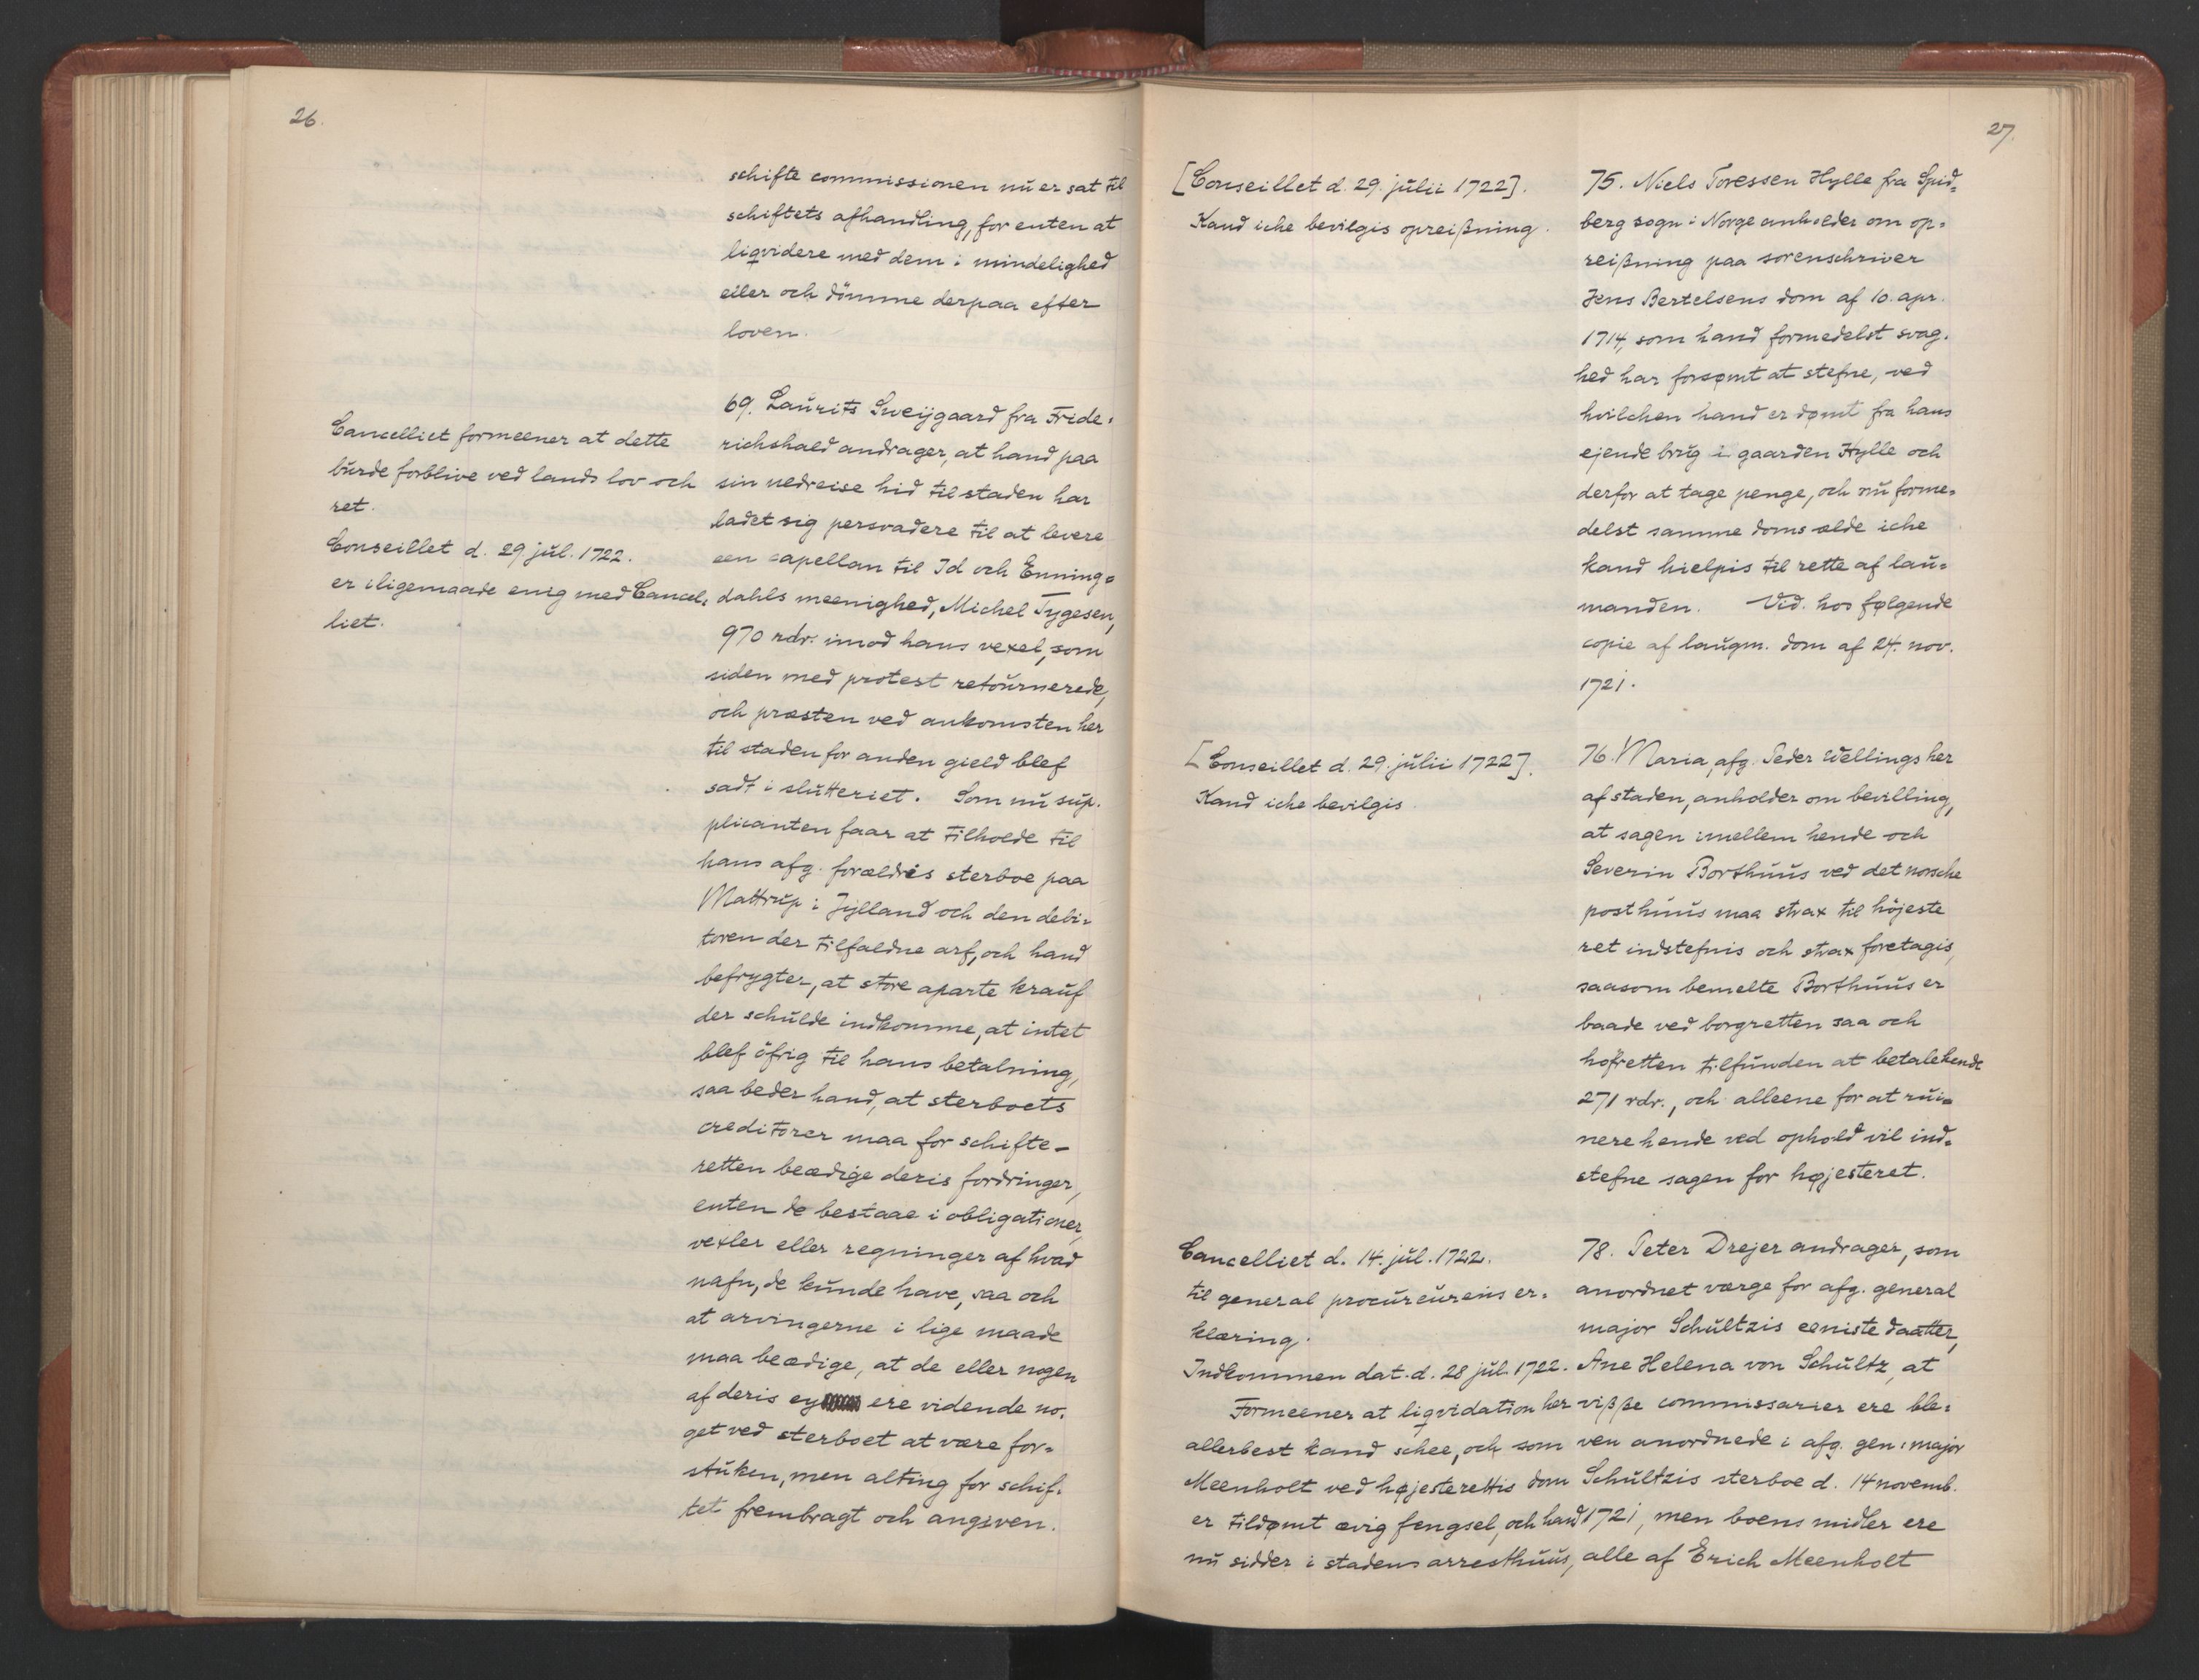 26.
schifte commissionen nu er sat til
schiftets afhandling, for enten at
liqvidere med dem i mindelighed
eller och dömme derpaa efter
loven.
Cancelliet formeener at dette
burde forblive ved lands lov och
ret.
Conseillet d. 29. jul. 1722.
er iligemaade enig med Cancel=
liet.
69. Laurits Sveijgaard fra Fride=
richshald andrager, at hand paa
sin nedreise hid til staden har
ladet sig persvadere til at levere
een capellan til Id och Enning=
dahls meenighed, Michel Tygesen,
970 rdr. imod hans vexel, som
siden med protest retournerede,
och præsten ved ankomsten her
til staden for anden gield blef
sadt i slutteriet. Som nu sup=
plicanten faar at tilholde til
hans afg. forældris sterboe paa
Mattrup i Jylland och den debi=
toren der tilfaldne arf, och hand
befrygter, at store aparte krauf
der schulde indkomme, at intet
blef öfrig til hans betalning,
saa beder hand, at sterboets
creditorer maa for schifte-
retten beædige deris fordringer,
enten de bestaae i obligationer,
vexler eller regninger af hvad
nafn, de kunde have, saa och
at arvingerne i lige maade
maa beædige, at de eller nogen
af deris ey ere vidende no=
get ved sterboet at være for=
stuken, men alting for schif=
tet frembragt och angiven.
27.
[Conseillet d. 29. julii 1722].
Kand iche bevilgis opreißning.
75. Niels Toressen Hylle fra Spid=
berg sogn i Norge anholder om op=
reißning paa sorenschriver
Jens Bertelsens dom af 10. apr.
1714, som hand formedelst svag=
hed har forsømt at stefne, ved
hvilchen hand er dømt fra hans
ejende brug i gaarden Hylle och
derfor at tage penge, och nu forme=
delst samme doms ælde iche
kand hielpis til rette af lau=
manden. Vid. hos følgende
copie af laugm. dom af 24. nov.
1721.
[Conseillet d. 29. julii 1722].
Kand iche bevilgis
76. Maria, afg. Peder Wellings her
af staden, anholder om bevilling,
at sagen imellem hende och
Severin Borthuus ved det norsche
posthuus maa strax til höjeste
ret indstefnis och strax foretagis,
saasom bemelte Borthuus er
baade ved borgretten saa och
hofretten tilfunden at betale hende
271 rdr., och alleene for at rui=
nere hende ved ophold vil ind=
stefne sagen for højesteret.
Cancelliet d. 14. jul. 1722.
til general procureurens er=
klæring.
Indkommen dat. d. 28 jul. 1722.
Formeener at liqvidation her
allerbest kand schee, och som
Meenholt ved højesterettis dom
er tildømt ævig fengsel, och hand
nu sidder i stadens arresthuus,
78. Peter Drejer andrager, som
anordnet værge for afg. general
major Schultzis eeniste daatter,
Ane Helena von Schultz, at
viße commissarier ere ble=
ven anordnede i afg. gen: major
Schultzis sterboe d. 14 novemb.
1721, men boens midler ere
alle af Erich Meenholt